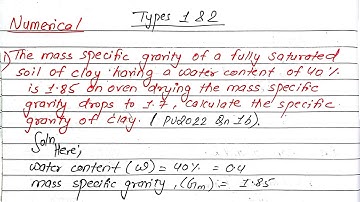 Types 1 & 2
Numerical
1) The mass specific gravity of a fully saturated
soil of clay having a water content of 40%
is 1.85 on oven drying the mass specific
gravity drops to 1.7, calculate the specific
gravity of clay. (PU2022 Qn 1b).
Soln
Here,
water content (w) = 40% = 0.4
mass specific gravity, (Gm) = 1.85